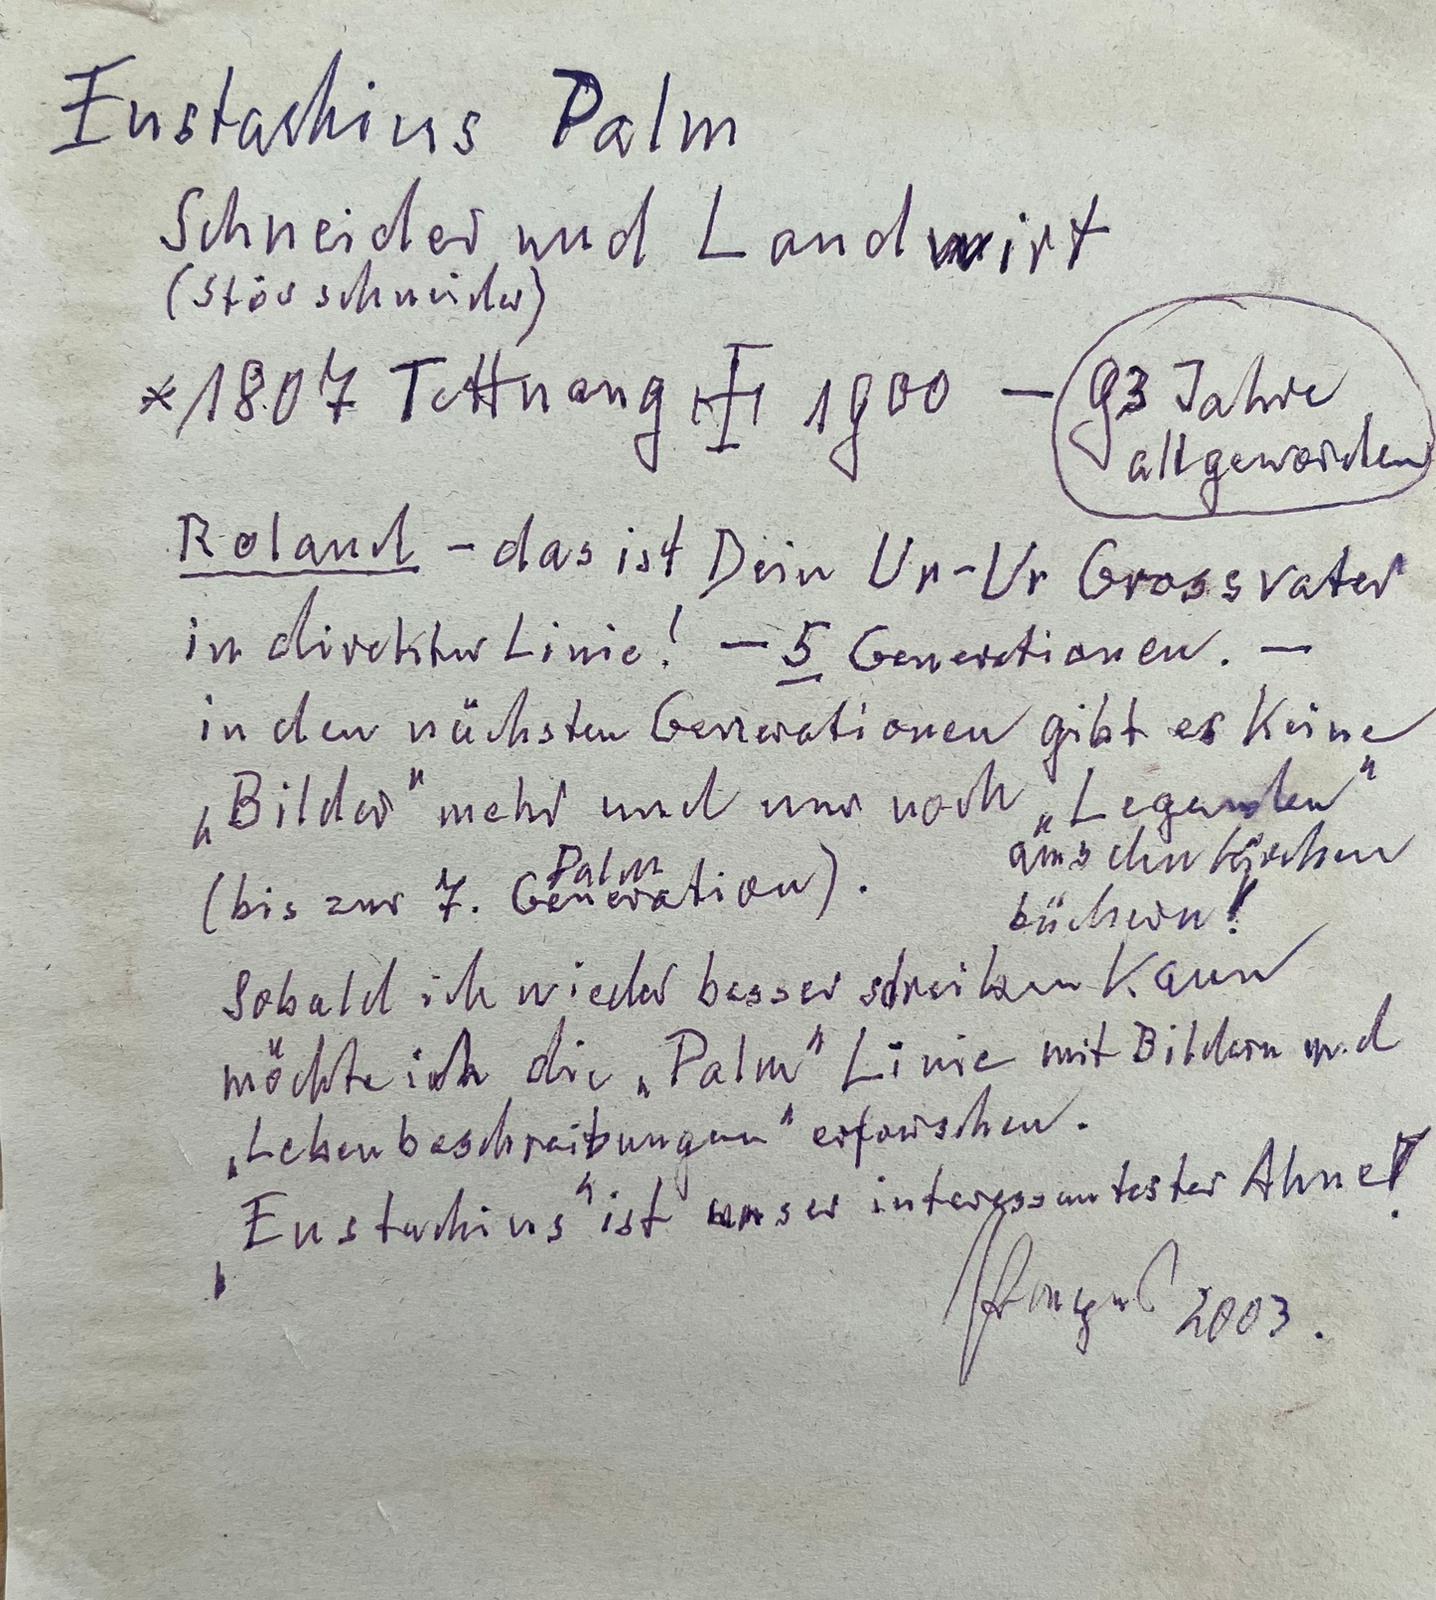 Eustachius Palm
Schneider und Landwirt
(Störschneider)
*1807 Tettnang ✠ 1900 – 93 Jahre
alt geworden
Roland – das ist Dein Ur-Ur Grossvater
in direkter Linie! – 5 Generationen. –
in den nächsten Generationen gibt es keine
„Bilder" mehr und nur noch „Legenden"
aus den Kirchen
büchern!
(bis zur 7. Palm Generation).
Sobald ich wieder besser schreiben kann
möchte ich die „Palm" Linie mit Bildern und
„Lebenbeschreibungen" erforschen.
„Eustachius" ist unser interessantester Ahne!
2003.